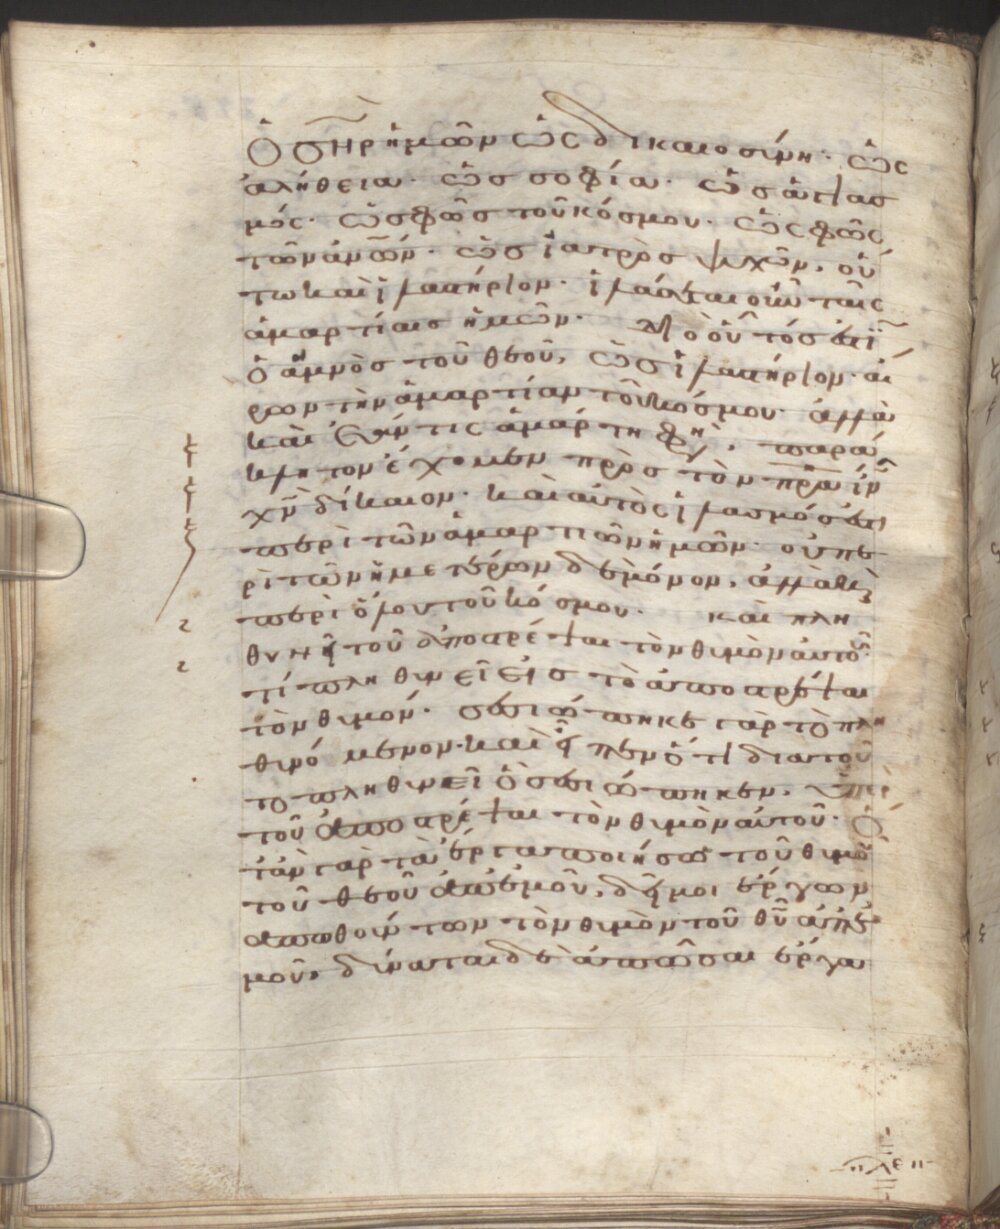 Ὁ σ̅η̅ρ ἡμῶν ὡς δικαιοσύνη· ὡς
ἀλήθεια· ὡς σοφία· ὡς ἁγιασ
μός· ὡς φῶς τοῦ κόσμου· ὡς φῶς
τῶν ἀν̅ω̅ν· ὡς ἰατρὸς ψυχῶν, οὕ
τω καὶ ἱλαστήριον· ἱλάσεται οὖν ταῖς
ἁμαρτίαις ἡμῶν· Διὸ οὗτός ἐστι̅
ὁ ἀμνὸς τοῦ θεοῦ, ὡς ἱλαστήριον αἴ
ρων τὴν ἁμαρτίαν τοῦ κόσμου· ἀλλὰ
καὶ ἐάν τις ἁμάρτη φη, παρά
κλητον ἔχομεν πρὸς τὸν π̅ρ̅α ι̅ν
χ̅ν δίκαιον· καὶ αὐτὸς ἱλασμός ἐστι
περὶ τῶν ἁμαρτιῶν ἡμῶν· οὐ πε
ρὶ τῶν ἡμετέρων δὲ μόνον, ἀλλὰ καὶ
περὶ ὅλου τοῦ κόσμου· καὶ πλη
θυνῆ τοῦ ἀποστρέψαι τὸν θυμὸν αὐτοῦ·
τί πληθυνεῖ εἰς τὸ ἀποστρέψαι
τὸν θυμόν· σεσιώπηκε γὰρ τὸ πλη
θυνόμενον· καὶ εἶπεν ὅτι διὰ τοῦ
το πληθυνεῖ ὃ σεσιώπηκεν, ὑπὲρ
τοῦ ἀποστρέψαι τὸν θυμὸν αὐτοῦ· Ὅ
ταν γὰρ τὰ ἔργα ποιήσω τοῦ θυμοῦ
τοῦ θεοῦ ἀπ' ἐμοῦ, δεῖ μοι ἔργων
ἀπωθούντων τὸν θυμὸν τοῦ θ̅υ ἀπ' ἐ
μοῦ, δύναται δὲ ἀπῶσαι ἔργα